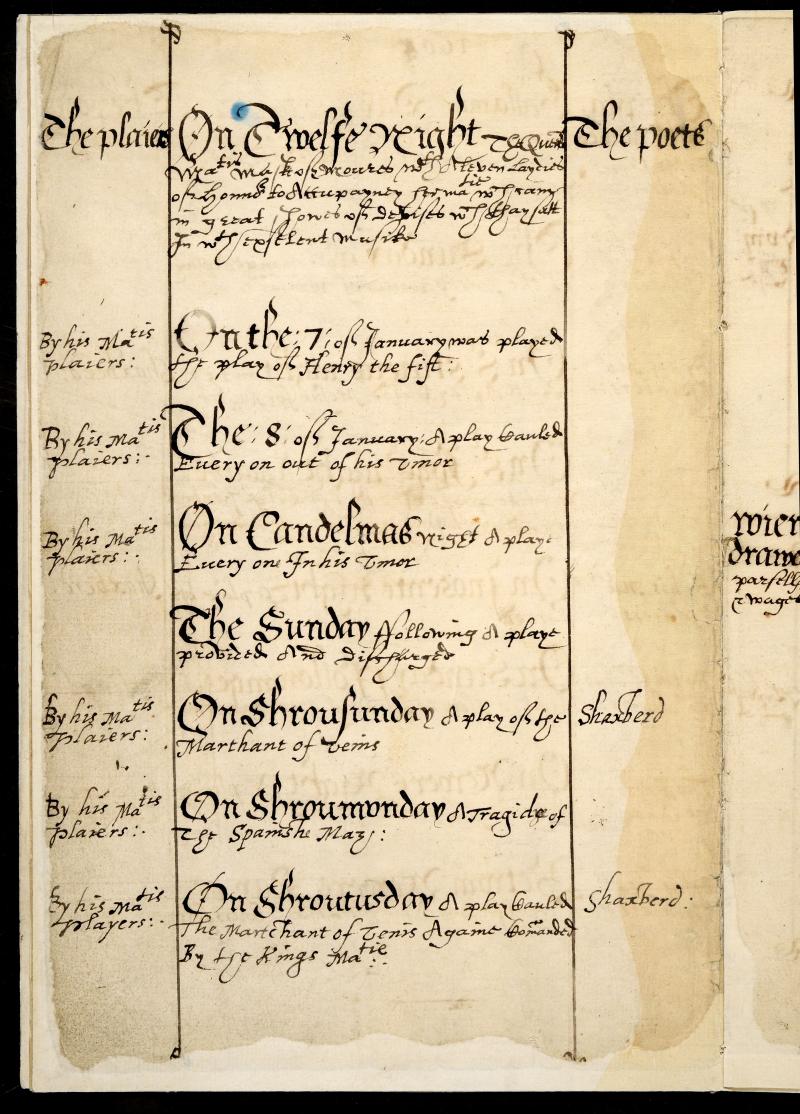 The plaiers On Twelfe Night The Quens The poets
Matis Mask of Moures with Aleven Laydies
of honnor to Accupayney her matie wch cam
in great showes of devises wch thay satt
In wth exselent musike
By his Matis On the 7 of January was played
plaiers: the play of Henry the fift:
By his Matis The: 8: of January: A play Cauled
plaiers:· Every on out of his Umor
By his Matis On Candelmas night A playe
plaiers:· Every one In his Umor
The Sunday ffollowing A playe
provided And discharged
By his Matis On Shrousunday A play of the Shaxberd
plaiers: Marthant of Venis
By his Matis On Shroumonday A Tragidye of
plaiers:· The Spanishe Maz:
By his Matis On Shroutusday A play Cauled Shaxberd:
players:· The Martchant of Venis Againe Comanded
By the Kings Matie:
wier
drawe
parsell